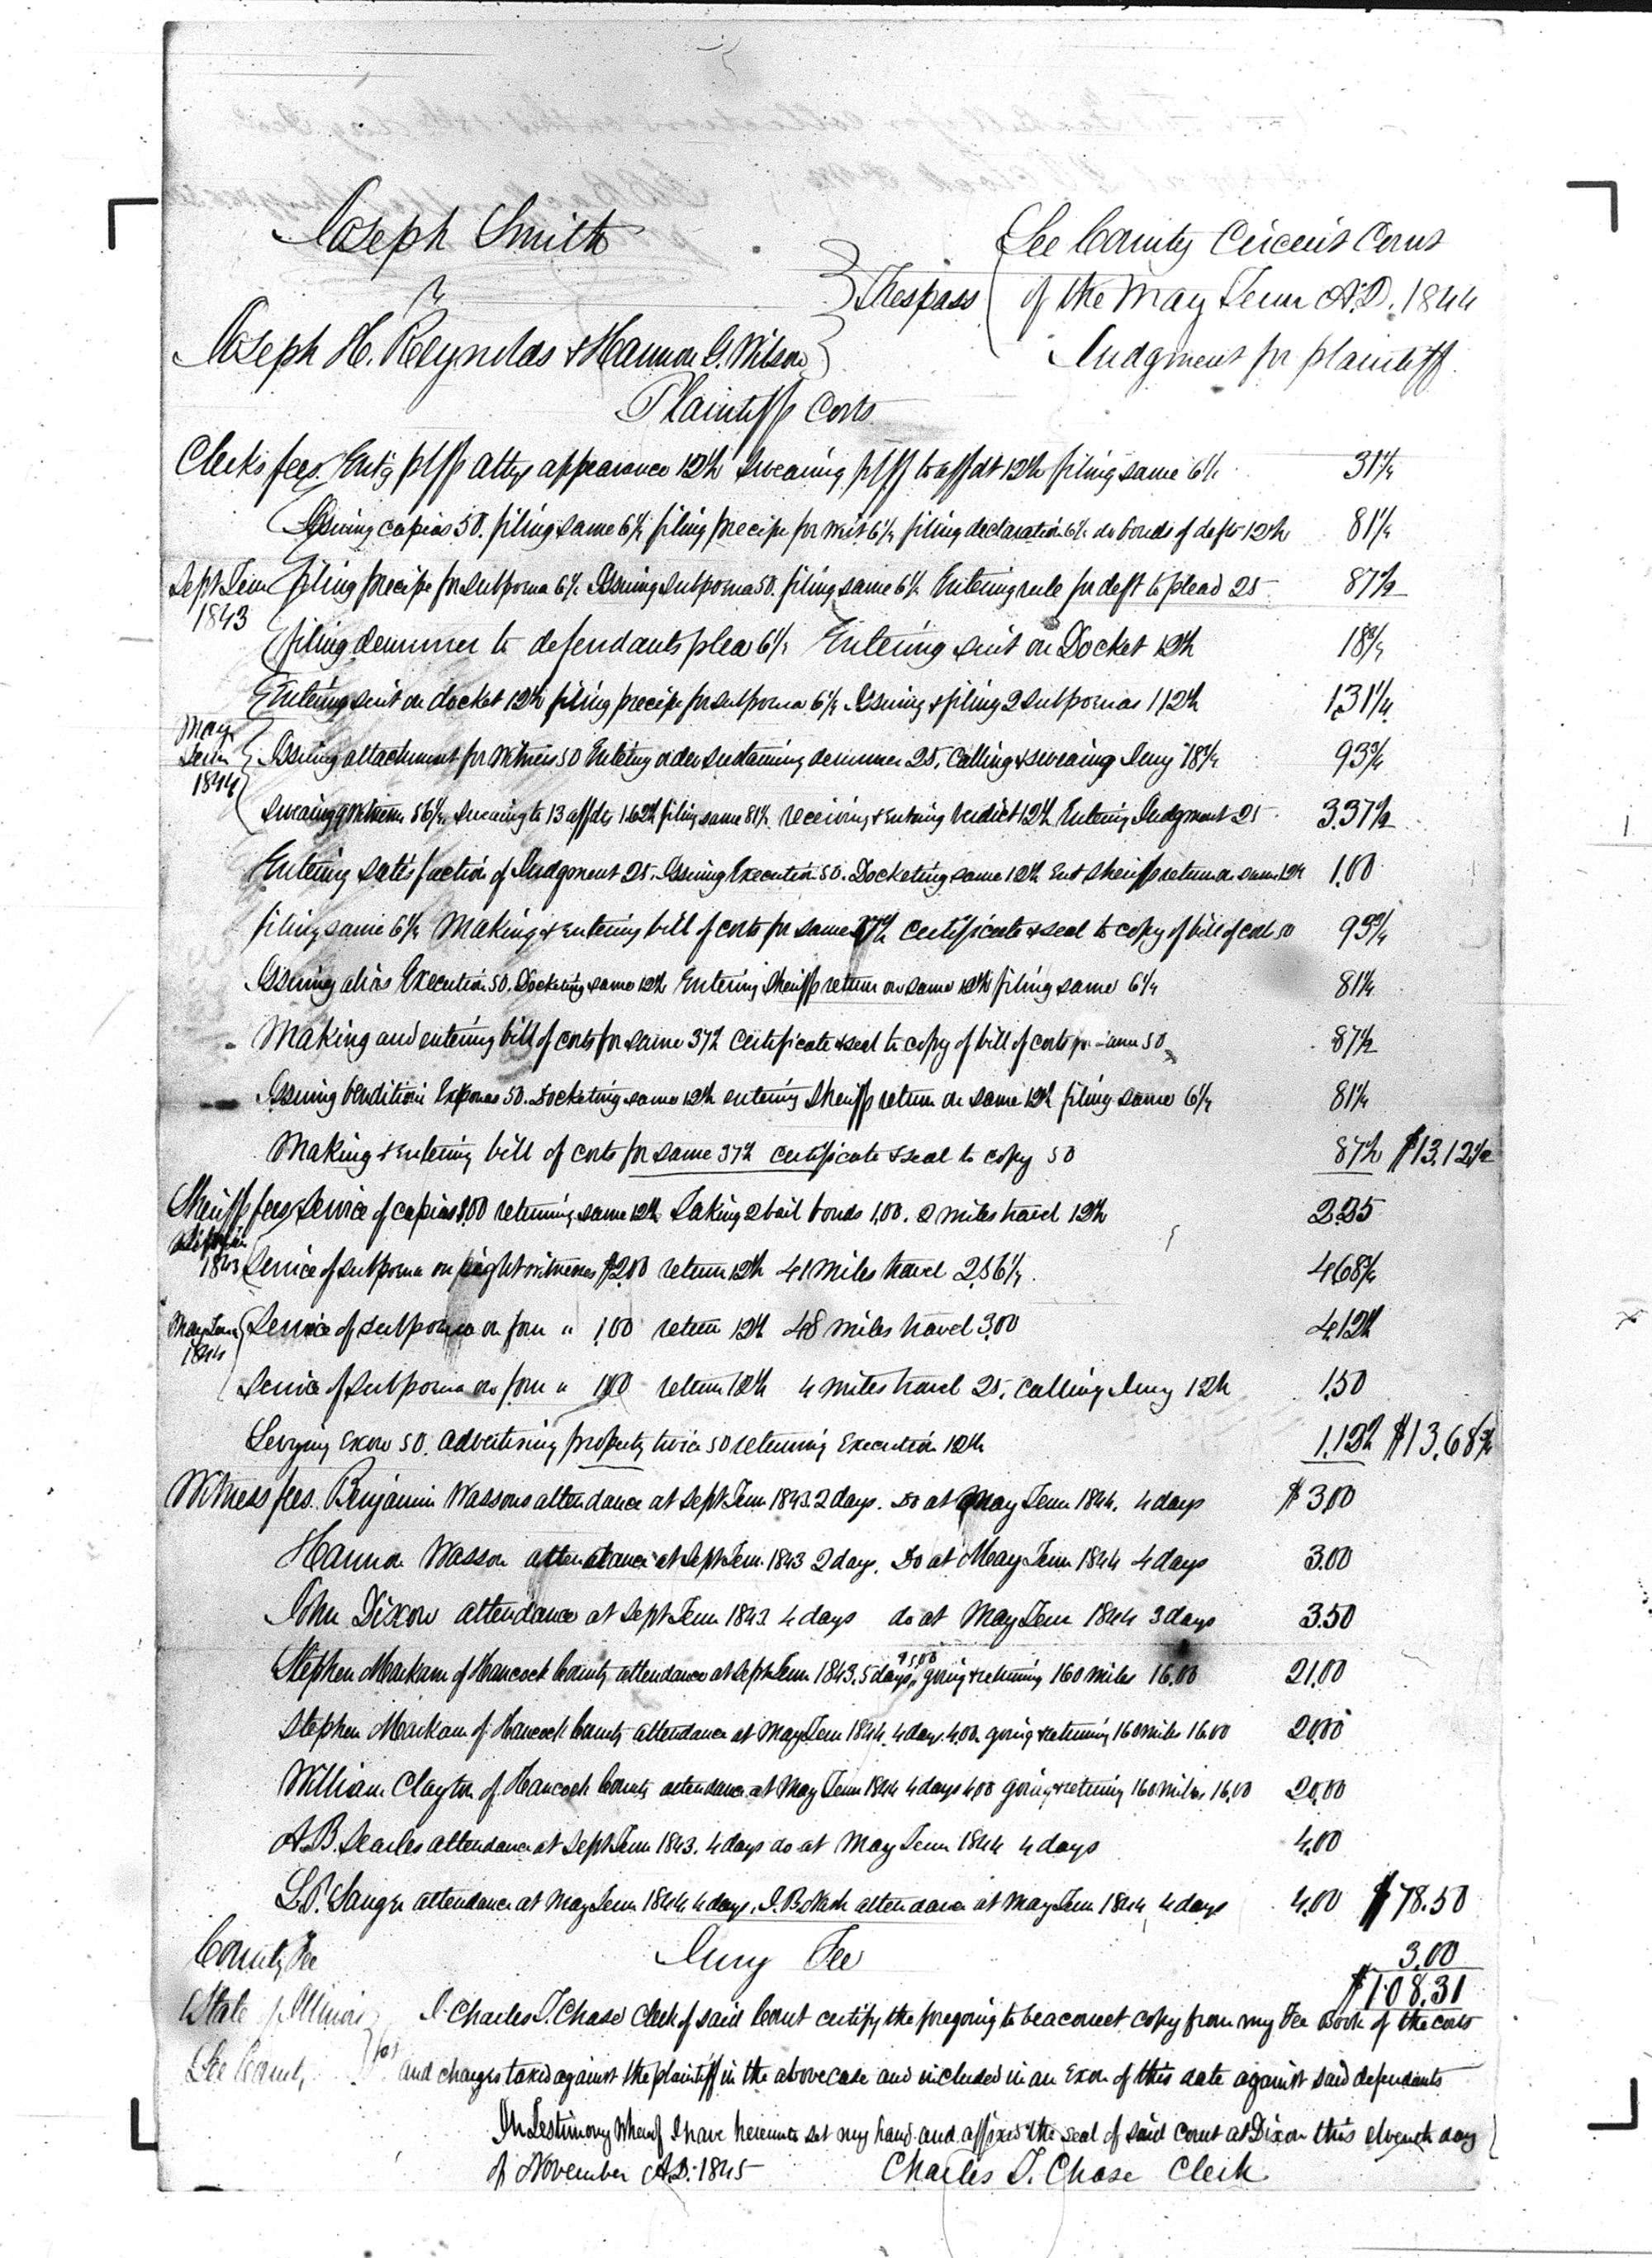 Joseph Smith
vs
Joseph H. Reynolds & Harmon G. Wilson
Trespass
Lee County Circuit Court
of the May Term A.D. 1844
Judgment for plaintiff
Plaintiffs Costs
Clerks fees. Ent'g plffs attys appearance 12½ swearing plff to affdt 12½ filing same 6¼ 31¼
Issuing capias 50. filing same 6¼ filing precipe for writ 6¼ filing declaration 6¼ do bonds of defts 12½ 81¼
Sept Term 1843 filing precipe for subpoena 6¼ Issuing subpoena 50. filing same 6¼ Entering rule for deft to plead 25 87½
filing demurrer to defendants plea 6¼ Entering suit on Docket 12½ 18¾
Entering suit on docket 12½ filing precipe for subpoena 6¼ Issuing & filing 2 subpoenas 1,12½ 1,31¼
May Term 1844 Issuing attachment for witness 50 Entering order sustaining demurrer 25, Calling & swearing Jury 18¾ 93¾
swearing 9 witnesses 56¼, swearing to 13 affdts 1.62½ filing same 81¼ receiving & entering verdict 12½ Entering Judgment 25 3.37½
Entering satisfaction of Judgment 25. Issuing Execution 50. Docketing same 12½ Ent Sheriffs return on same 12½ 1.00
filing same 6¼ Making & entering bill of costs for same 37½ certificate & seal to copy of bill of cost 50 93¾
Issuing alias Execution 50. Docketing same 12½ Entering Sheriffs return on same 12½ filing same 6¼ 81¼
Making and entering bill of costs for same 37½ Certificate & seal to copy of bill of costs for same 50 87½
Issuing Venditioni Exponas 50. Docketing same 12½ entering Sheriffs return on same 12½ filing same 6¼ 81¼
Making & entering bill of costs for same 37½ certificate & seal to copy 50 87½ $13.12½
Sheriffs fees Service of capias 1.00 returning same 12½ Taking 2 bail bonds 1,00. 2 miles travel 12½ 2.25
1843 Service of subpoena on eight witnesses $2.00 return 12½ 41 miles travel 2,56¼ 4,68¾
May Term 1844 Service of subpoena on four " 1,00 return 12½ 48 miles travel 3,00 4,12½
Service of subpoena on four " 1,00 return 12½ 4 miles travel 25, Calling Jury 12½ 1.50
Levying Exon 50. advertising property twice 50 returning Execution 12½ 1.12½ $13.68¾
Witness fees. Benjamin Wassons attendance at Sept Term 1843. 2 days. Do at May Term 1844. 4 days $3,00
Harmon Wasson attendance at Sept Term 1843 2 days. Do at May Term 1844 4 days 3.00
John Dixon attendance at Sept Term 1843. 4 days do at May Term 1844 3 days 3.50
Stephen Markam of Hancock County attendance at Sept Term 1843. 5 days, $5,00 going & returning 160 miles 16.00 21,00
Stephen Markam of Hancock County attendance at May Term 1844. 4 days. 4.00 going & returning 160 miles 16.00 20,00
William Clayton of Hancock County attendance at May Term 1844 4 days 4,00 going & returning 160 miles 16,00 20,00
A. B. Searles attendance at Sept Term 1843. 4 days do at May Term 1844 4 days 4,00
L. P. Sanger attendance at May Term 1844 4 days, J. B. Nash attendance at May Term 1844, 4 days 4.00 $78.50
County Fee Jury Fee 3,00
$108.31
State of Illinois
Lee County
I Charles T. Chase Clerk of said Court certify the foregoing to be a correct copy from my Fee Book of the costs
and charges taxed against the plaintiff in the above case and included in an Exon of this date against said defendants
In Testimony whereof I have hereunto set my hand and affixed the seal of said Court at Dixon this eleventh day
of November A.D. 1845 Charles T. Chase Clerk